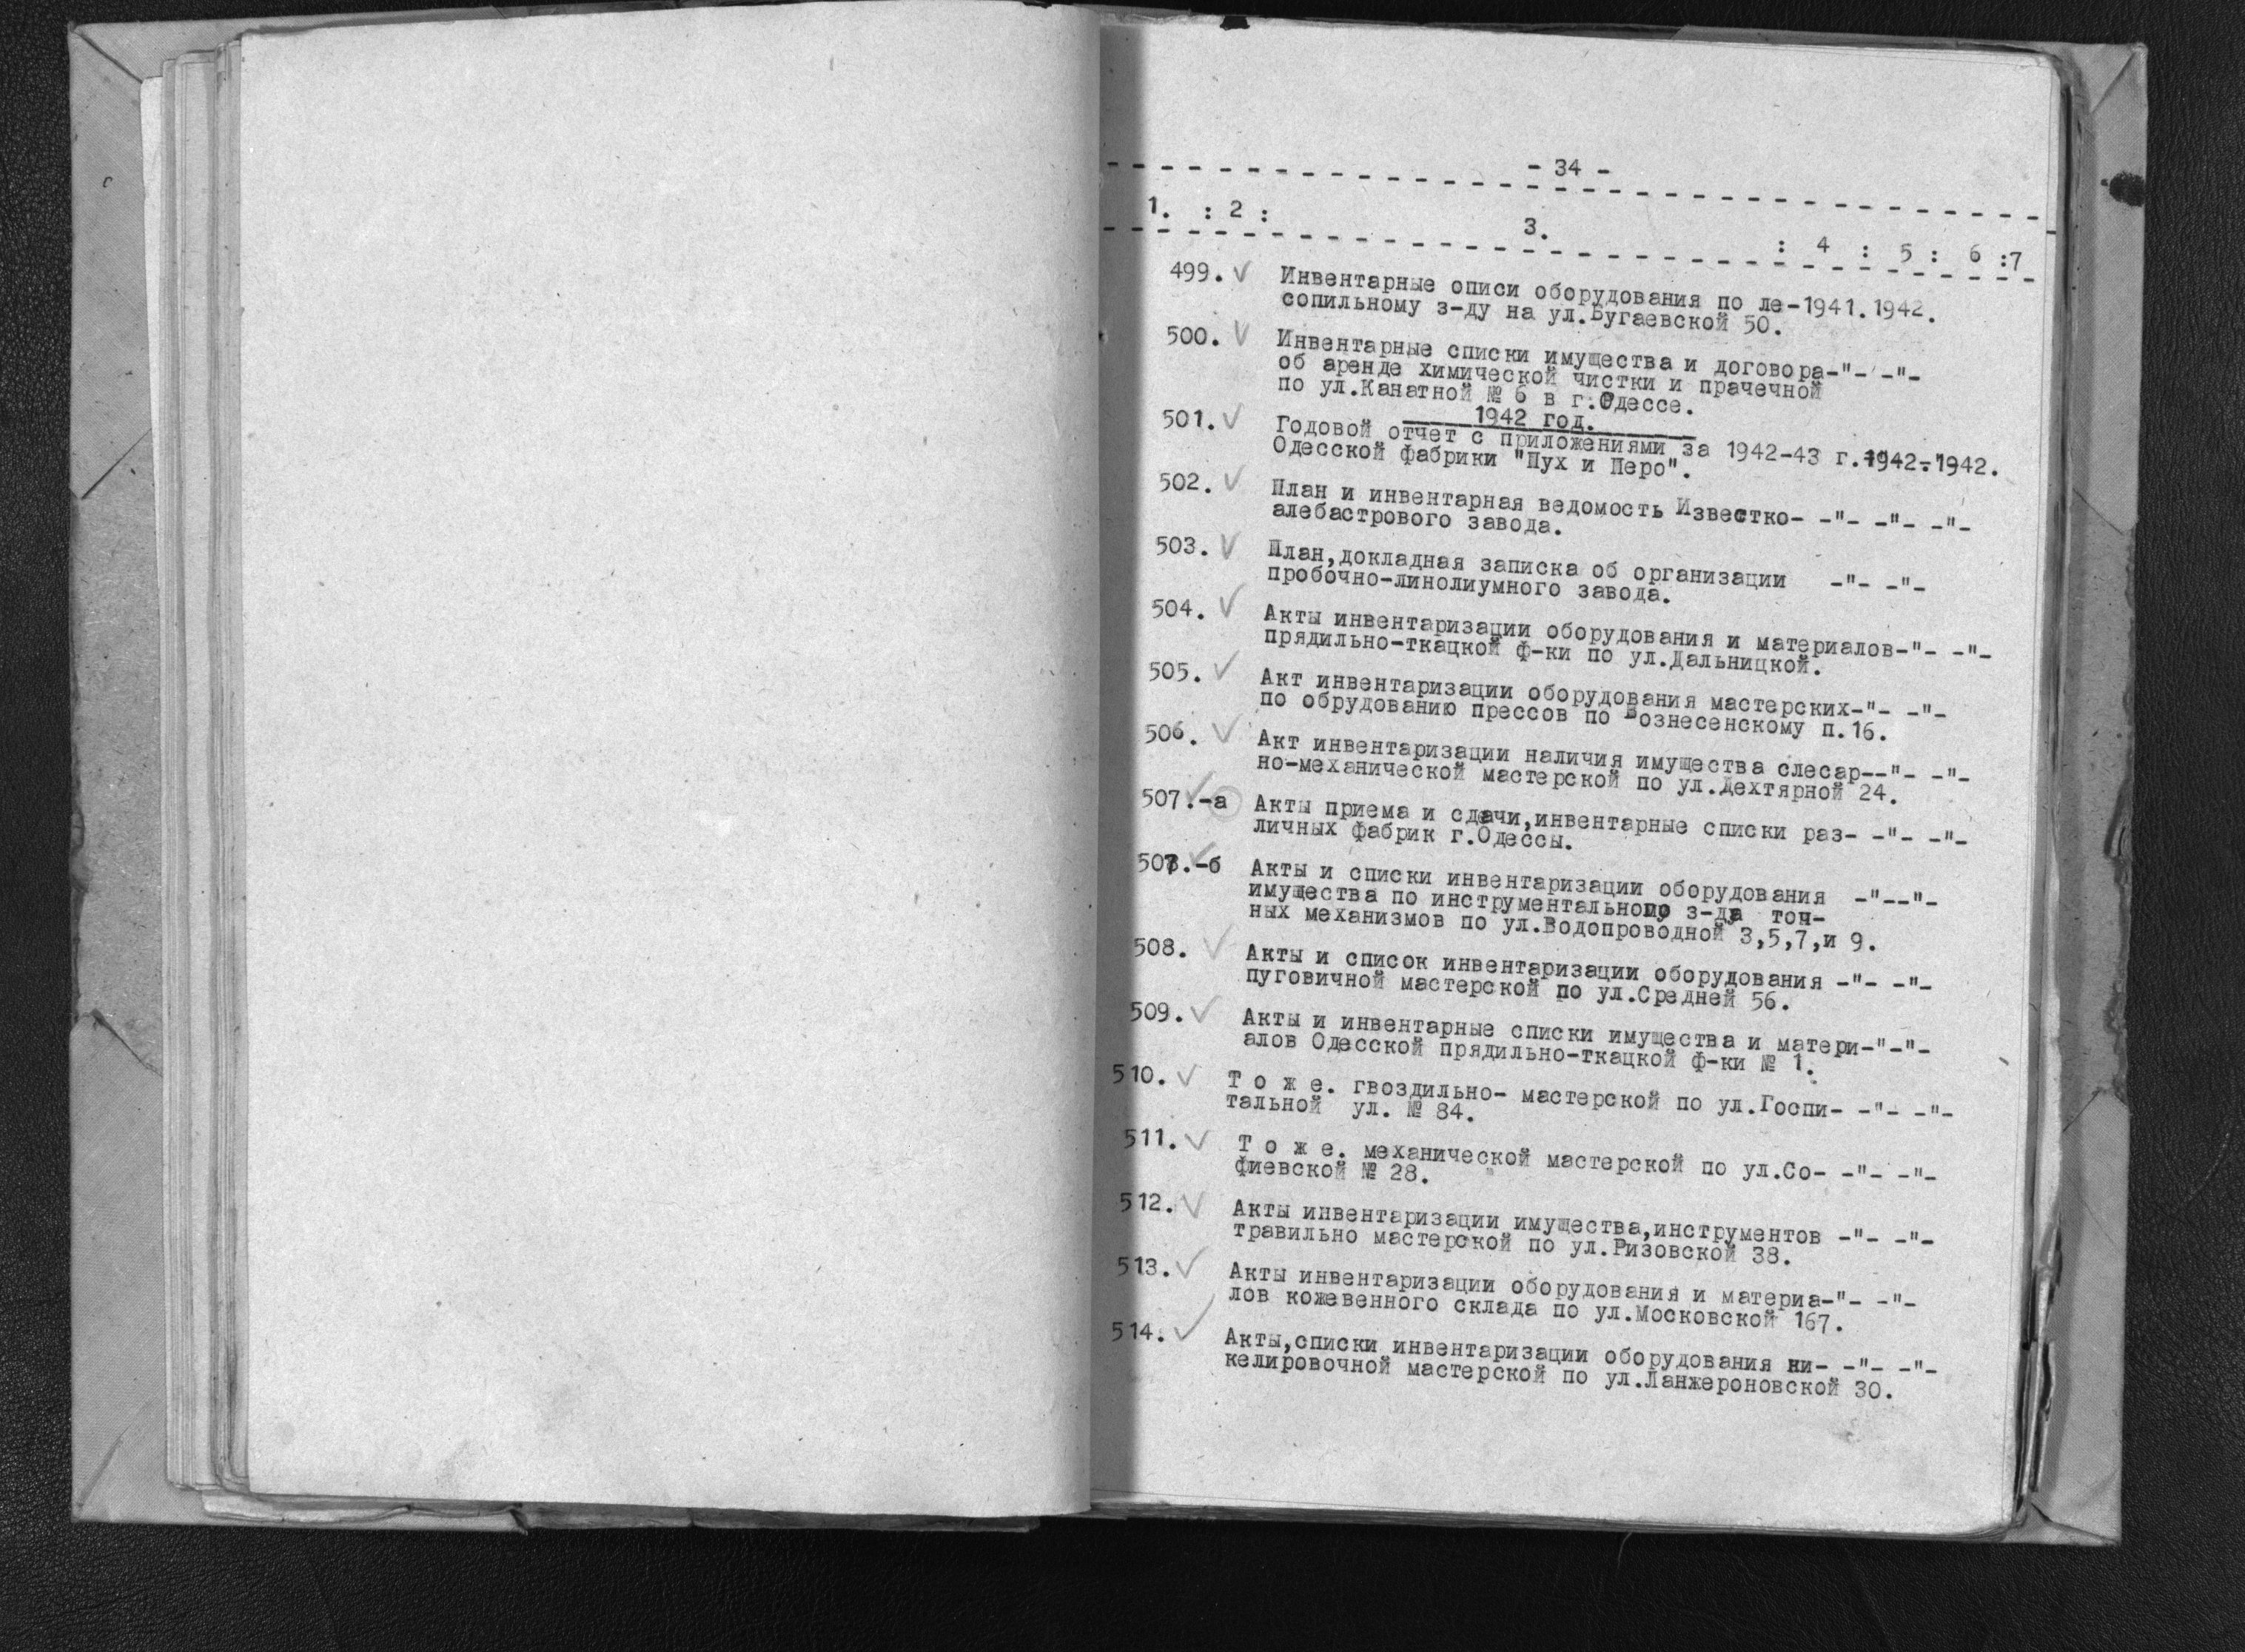 - 34 -
1. : 2 : 3. : 4 : 5 : 6 :7
499. Инвентарные описи оборудования по ле-1941.1942.
сопильному з-ду на ул.Бугаевской 50.
500. Инвентарные списки имущества и договора-"- -"-
об аренде химической чистки и прачечной
по ул.Канатной № 6 в г.Одессе.
1942 год.
501. Годовой отчет с приложениями за 1942-43 г.1942-1942.
Одесской фабрики "Пух и Перо".
502. План и инвентарная ведомость Известко- -"- -"- -"-
алебастрового завода.
503. План,докладная записка об организации -"- -"-
пробочно-линолиумного завода.
504. Акты инвентаризации оборудования и материалов-"- -"-
прядильно-ткацкой ф-ки по ул.Дальницкой.
505. Акт инвентаризации оборудования мастерских-"- -"-
по обрудованию прессов по Вознесенскому п.16.
506. Акт инвентаризации наличия имущества слесар--"- -"-
но-механической мастерской по ул.Дехтярной 24.
507.-а Акты приема и сдачи,инвентарные списки раз- -"- -"-
личных фабрик г.Одессы.
507.-б Акты и списки инвентаризации оборудования -"--"-
имущества по инструментальному з-ду точ-
ных механизмов по ул.Водопроводной 3,5,7,и 9.
508. Акты и список инвентаризации оборудования -"- -"-
пуговичной мастерской по ул.Средней 56.
509. Акты и инвентарные списки имущества и матери-"-"-
алов Одесской прядильно-ткацкой ф-ки № 1.
510. Т о ж е. гвоздильно- мастерской по ул.Госпи- -"- -"-
тальной ул. № 84.
511. Т о ж е. механической мастерской по ул.Со- -"- -"-
фиевской № 28.
512. Акты инвентаризации имущества,инструментов -"- -"-
травильно мастерской по ул.Ризовской 38.
513. Акты инвентаризации оборудования и материа-"- -"-
лов кожевенного склада по ул.Московской 167.
514. Акты,списки инвентаризации оборудования ни- -"- -"-
келировочной мастерской по ул.Ланжероновской 30.